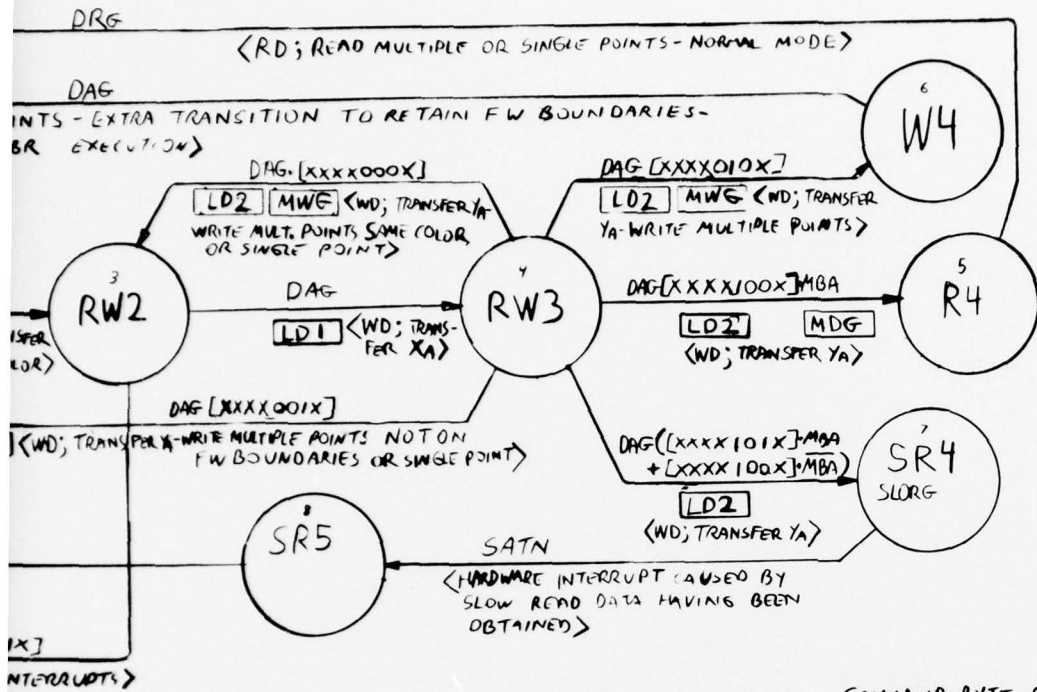 DRG
<RD; READ MULTIPLE OR SINGLE POINTS-NORMAL MODE>
DAG
INTS-EXTRA TRANSITION TO RETAIN FW BOUNDARIES-
BR EXECUTION>
6
W4
DAG.[XXXX000X]
LD2 MWG <WD; TRANSFER YA-
WRITE MULT. POINTS SAME COLOR
OR SINGLE POINT>
DAG [XXXX010X]
LD2 MWG <WD; TRANSFER
YA-WRITE MULTIPLE POINTS>
3
RW2
DAG
LD1 <WD; TRANS-
FER XA>
4
RW3
DAG[XXXX100X]·MBA
LD2 MDG
<WD; TRANSFER YA>
5
R4
NSFER
LOR>
DAG [XXXX001X]
] <WD; TRANSFER YA-WRITE MULTIPLE POINTS NOT ON
FW BOUNDARIES OR SINGLE POINT>
DAG([XXXX101X]·MBA
+[XXXX100X]·M̅B̅A̅)
LD2
<WD; TRANSFER YA>
7
SR4
SLORG
8
SR5
SATN
<HARDWARE INTERRUPT CAUSED BY
SLOW READ DATA HAVING BEEN
OBTAINED>
1X]
INTERRUPTS>